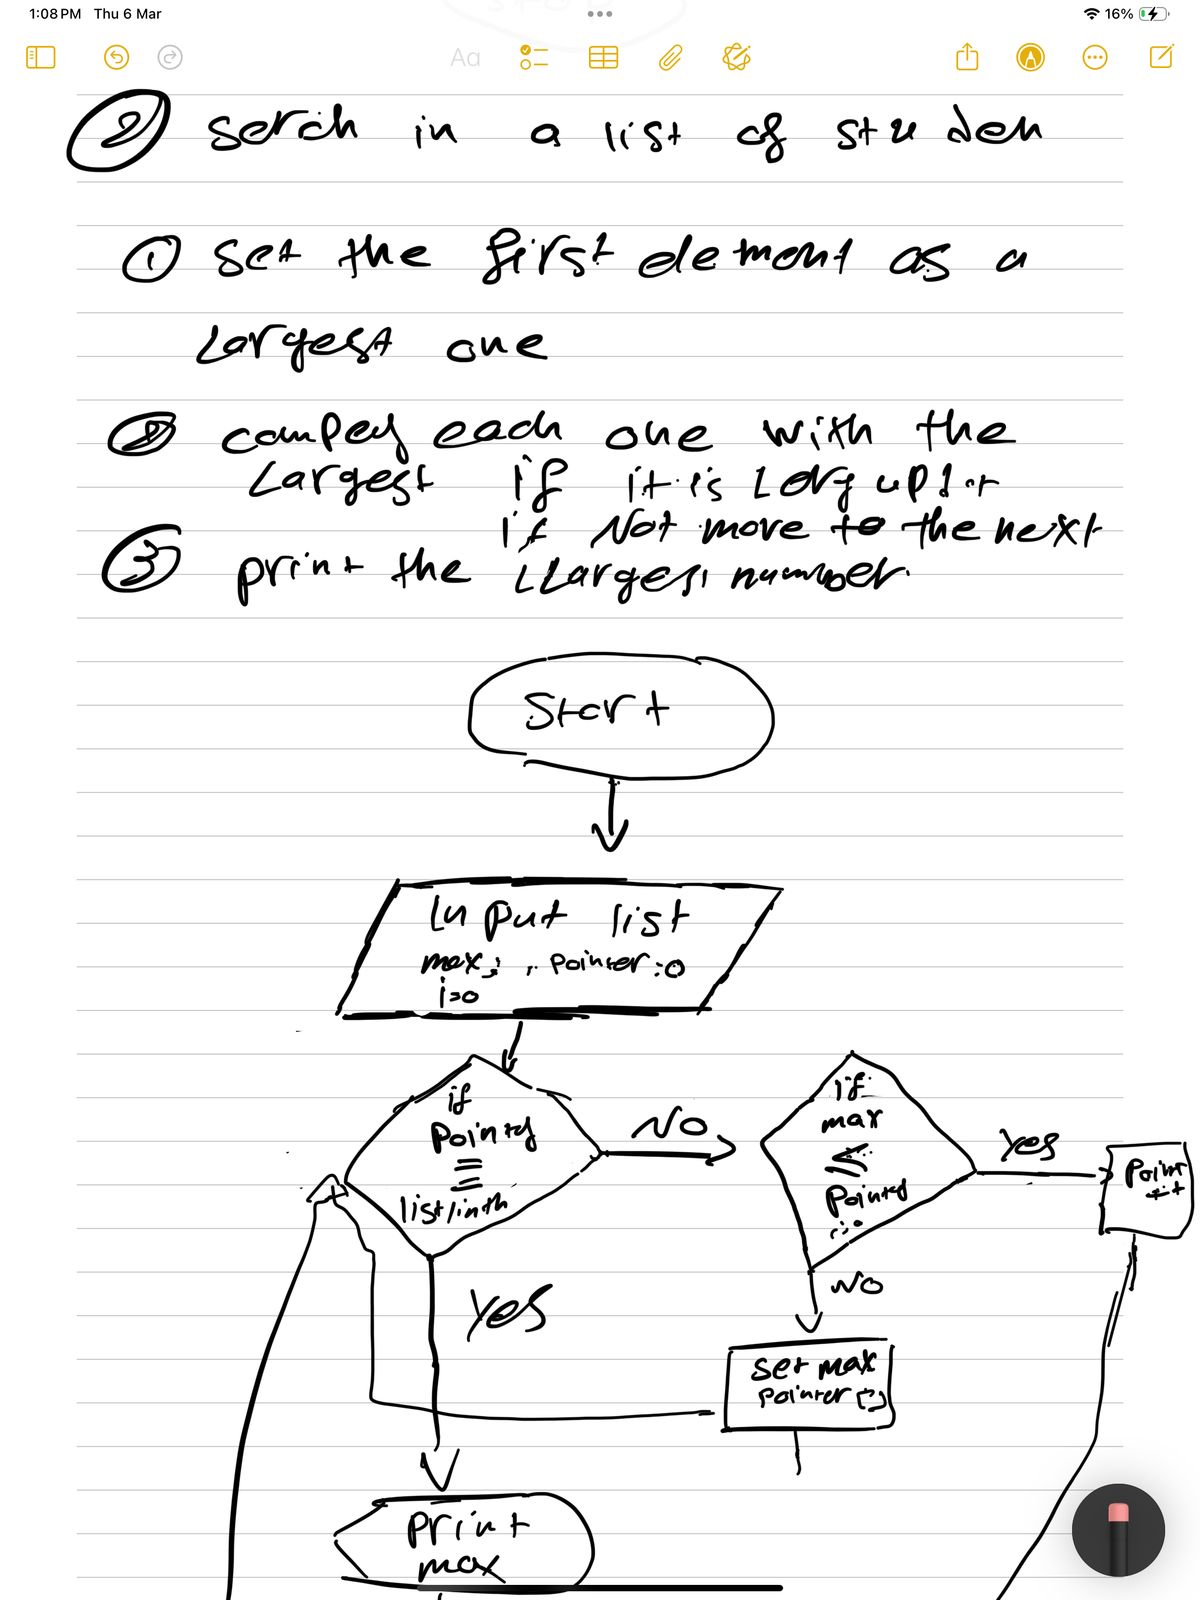 1:08 PM Thu 6 Mar
16%
Aa
2 serch in a list of studen
1 set the first element as a
Largest one
2 each one with the
Largest if it is Larg
if Not move to the next
3 print the Largest number.
Start
Input list
max, Pointer:0
i=0
if
Pointer
==
list
No
Yes
if
max
<
Pointer
Yes
Point
No
set max
Pointer []
print
max